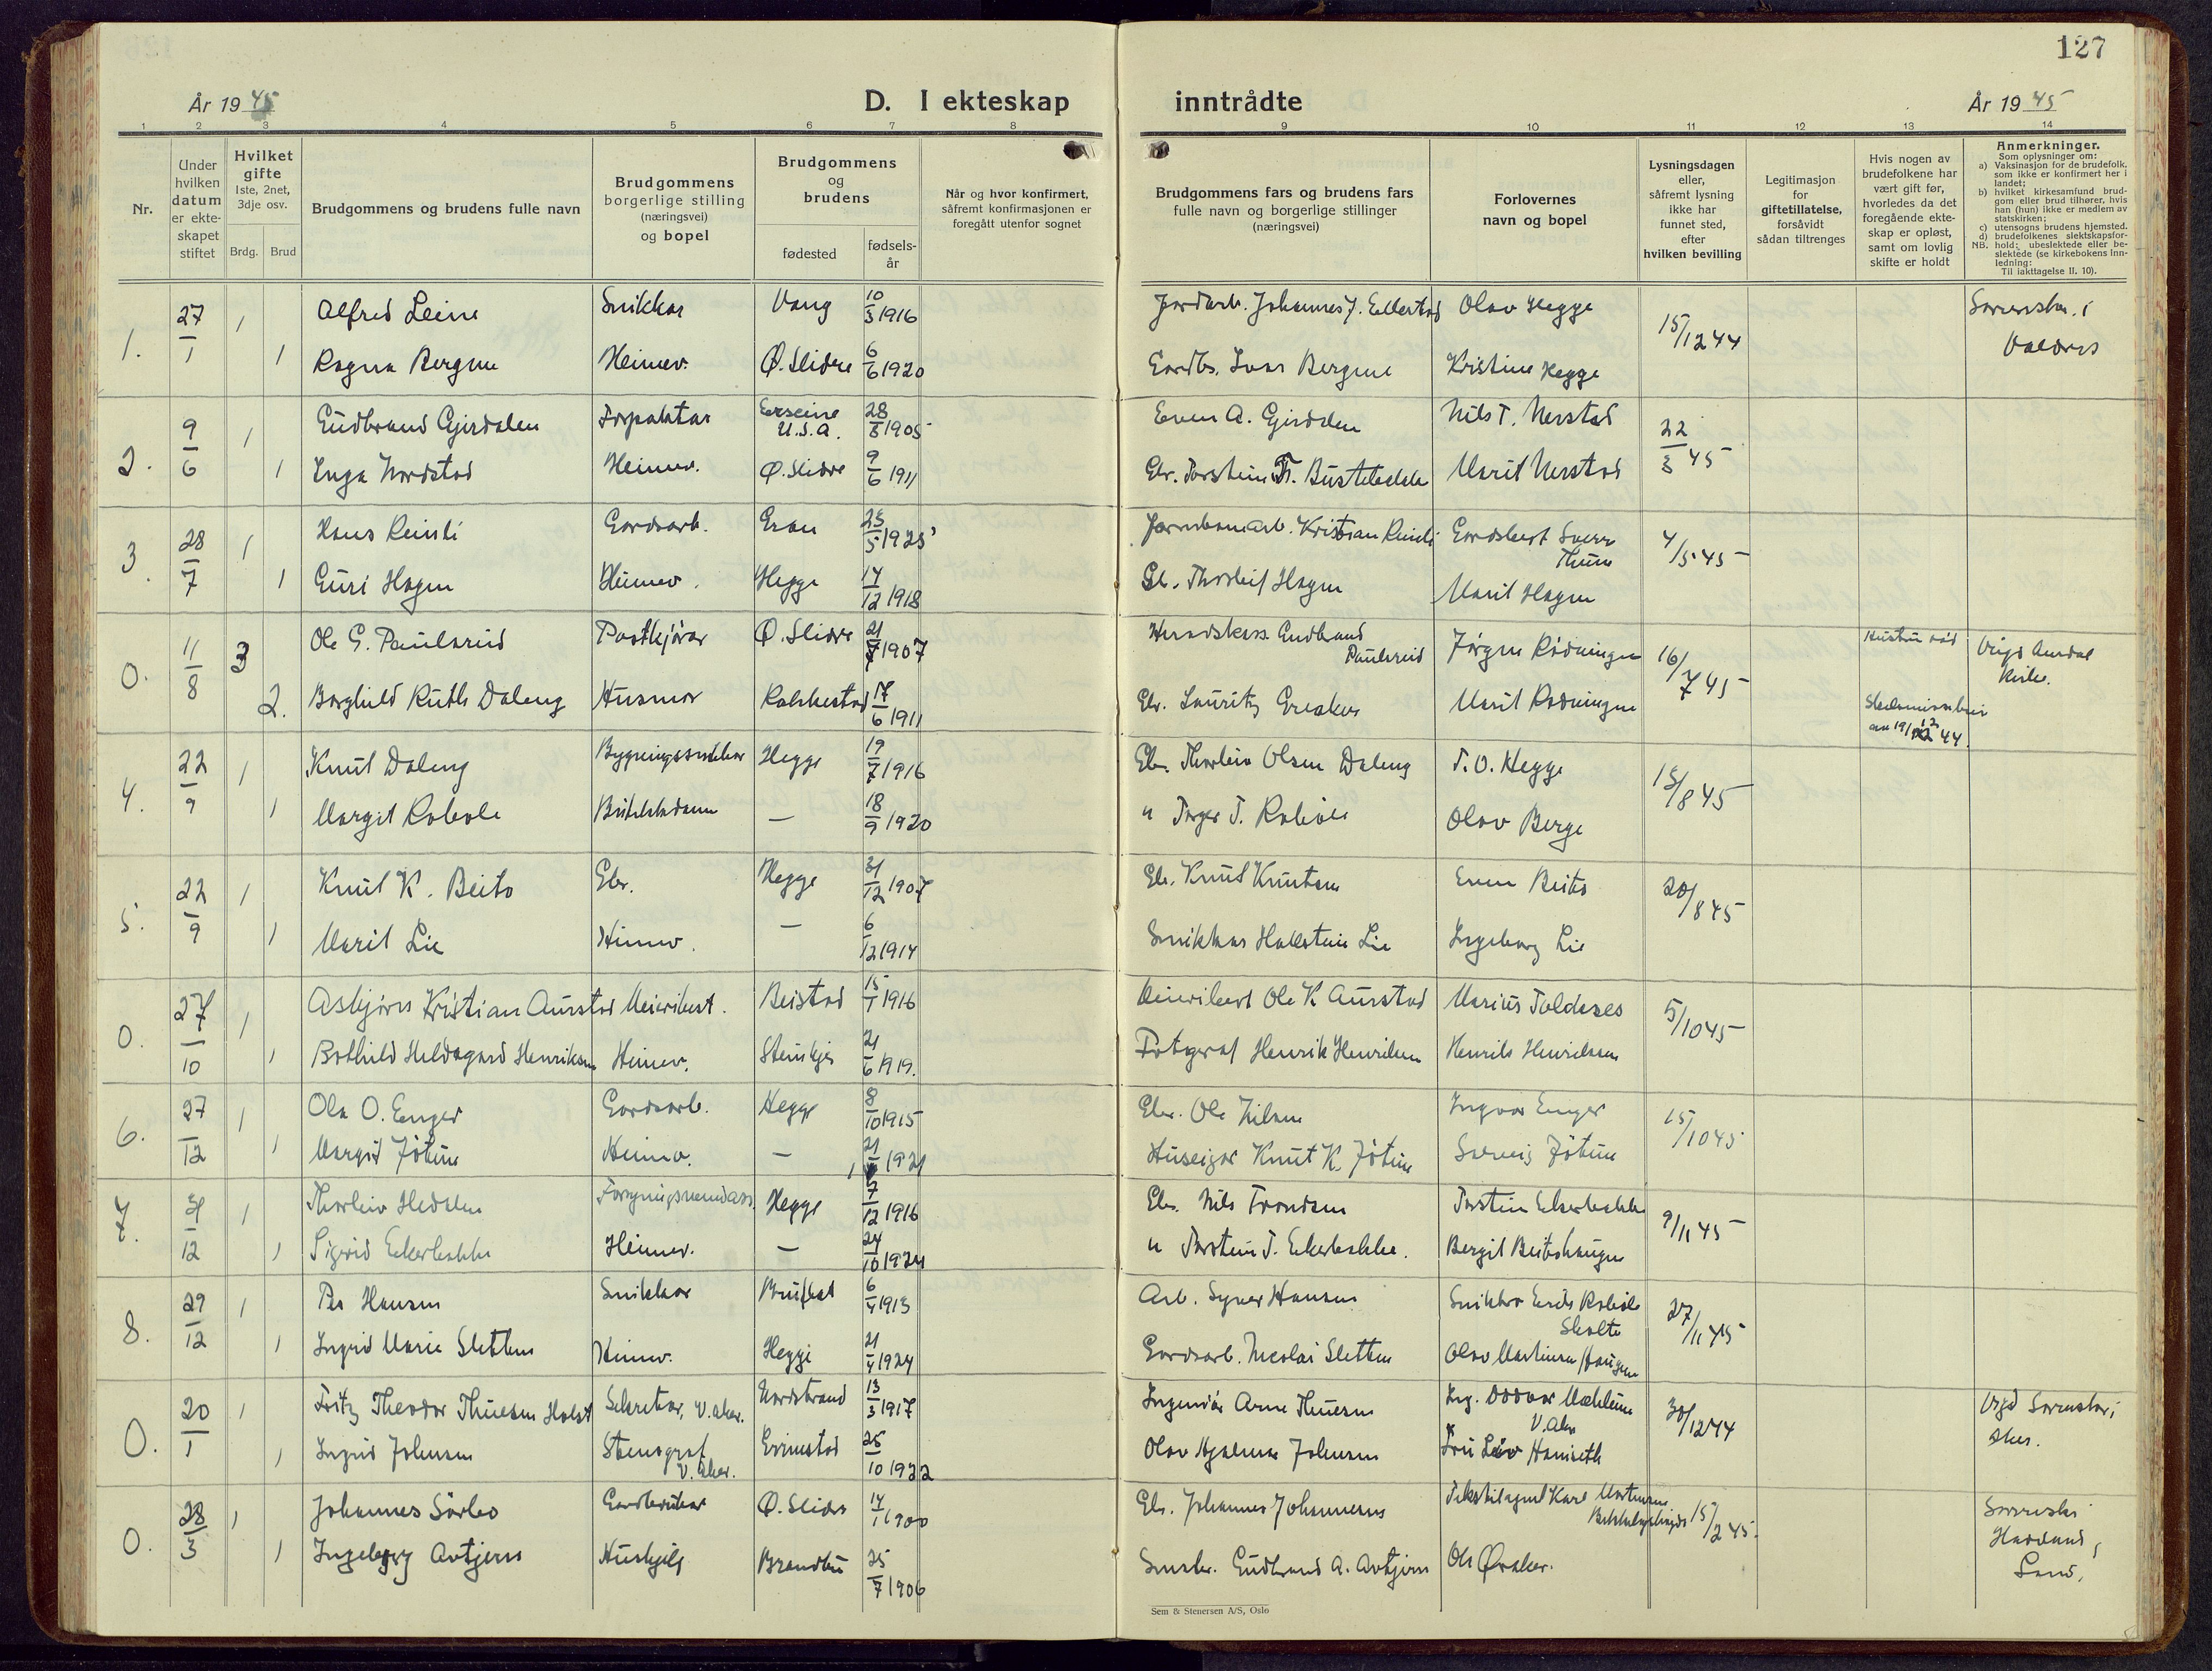 127
År 1945
D. I ekteskap
inntrådte
År 1945
1 2 3 4 5 6 7 8 9 10 11 12 13 14
Nr.
Under
hvilken
datum
er ekte-
skapet
stiftet
Hvilket
gifte
1ste, 2net,
3dje osv.
Brdg. Brud
Brudgommens og brudens fulle navn
Brudgommens
borgerlige stilling
(næringsvei)
og bopel
Brudgommens
og
brudens
fødested
fødsels-
år
Når og hvor konfirmert,
såfremt konfirmasjonen er
foregått utenfor sognet
Brudgommens fars og brudens fars
fulle navn og borgerlige stillinger
(næringsvei)
Forlovernes
navn og bopel
Lysningsdagen
eller,
såfremt lysning
ikke har
funnet sted,
efter
hvilken bevilling
Legitimasjon
for
giftetillatelse,
forsåvidt
sådan tiltrenges
Hvis nogen av
brudefolkene har
vært gift før,
hvorledes da det
foregående ekte-
skap er opløst,
samt om lovlig
skifte er holdt
Anmerkninger.
Som oplysninger om:
a) Vaksinasjon for de brudefolk.
som ikke er konfirmert her i
landet;
b) hvilket kirkesamfund brud-
gom eller brud tilhører, hvis
han (hun) ikke er medlem av
statskirken;
c) utensogns brudens hjemsted.
d) brudefolkenes slektskapsfor-
NB. hold: ubeslektede eller be-
slektede (se kirkebokens inn-
ledning:
Til iakttagelse II. 10).
1. 27/1 1 Alfred Leine Snikkar Vang 10/3 1916 Johannes J. Ellestad Olav Hegge 15/12 44 i
1 Ragna Bergene Heimev. Ø. Slidre 6/6 1920 Gardbr. Ivar Bergene Kristine Hegge Valdres
2. 9/6 1 Gudbrand Gjerdalen Forpaktar U.S.A. 1905 Even A. Gjerdalen Nils T. Nerstad 22/3 45
1 Inga Nordstad Heimev. Ø. Slidre 9/6 1911 Gbr. Torstein Marit Nerstad
3. 28/7 1 Hans Reinli Gardsarb. Gran 25/5 1925 Kristian Reinli Gardsbest. Sverre
Thune 4/5 45
1 Guri Hagen Heimev. Hegge 14/12 1918 Gb. Thorleif Hagen Marit Hagen
0. 11/8 3 Ole G. Paulsrud Postkjörar Ø. Slidre 21/7 1907 Heradskass. Gudbrand
Paulsrud Jørgen Rødningen 16/7 45 Vigd Aurdal
Kirke.
2. Borghild Ruth Daleng Husmor 17/6 1911 Gbr. Lauritz Marit Rødningen
4. 22/9 1 Knut Daleng Hegge 19/7 1916 Gbr. Thorleiv Olsen Daleng T. O. Hegge 15/8 45
1 Margit Robøle — 18/9 1920 " T. Robøle Olav Berge
5. 22/9 1 Knut K. Beito Gbr. Hegge 31/12 1907 Gb. Knut Knutsen Even Beito 20/8 45
1 Marit Lie Heimev. — 6/12 1914 Snikkar Hallstein Lie Ingeborg Lie
0. 27/10 1 Asbjörn Kristian Aurstad Meieribest. Beistad 15/1 1916 Meieribest. Ole K. Aurstad Marius Toldnes 5/10 45
1 Bothild Hildegard Henriksen Heimev. Steinkjer 21/6 1919. Fotograf Henrik Henriksen Henrik Henriksen
6. 27/12 1 Ola O. Enger Gardsarb. Hegge 8/10 1915 Gbr. Ole Nilsen Ingvar Enger 15/10 45
1 Margit Jötun Heimev. — 1921 Huseigar Knut K. Jötun Solveig Jötun
7. 31/12 1 Thorleiv Hedalen Hegge 7/12 1916 Gbr. Nils Trondsen Torstein Ekerbakke 9/11 45
1 Sigrid Ekerbakke Heimev. — 24/10 1924 " Torstein T. Ekerbakke. Bergit Beitohaugen
8. 29/12 1 Per Hansen Snikkar Bruflat 6/4 1913 Arb. Syver Hansen Snikkar Robøle
Skolte 27/11 45
1 Ingrid Marie Sletten Heimev. Hegge 21/4 1924 Gardsarb. Nicolai Sletten Olav Martinsen Haugen
0. 20/1 1 Fritz Theodor Thuesen Holst Sekretær, V. Aker. Nordstrand 13/3 1917 Ingeniör Arne Thuesen Ing. Oddvar Mæhlum
V. Aker 30/12 44 Vigd Sorenskr. i
Aker.
1 Ingrid Johnsen Stenograf
V. Aker. Grimstad 25/10 1922 Olav Hjalmar Johnsen Fru Liv
0. 28/3 1 Johannes Sörbo Gardbrukar Ø. Slidre 14/1 1900 Gbr. Johannes Johannesen Karl Martinsen
15/2 45. Hadeland,
Land,
1 Ingeborg Avtjern Hushjelp Brandbu 25/7 1906 Gudbrand A. Avtjern Ole Øvaker.
Sem & Stenersen A/S, Oslo